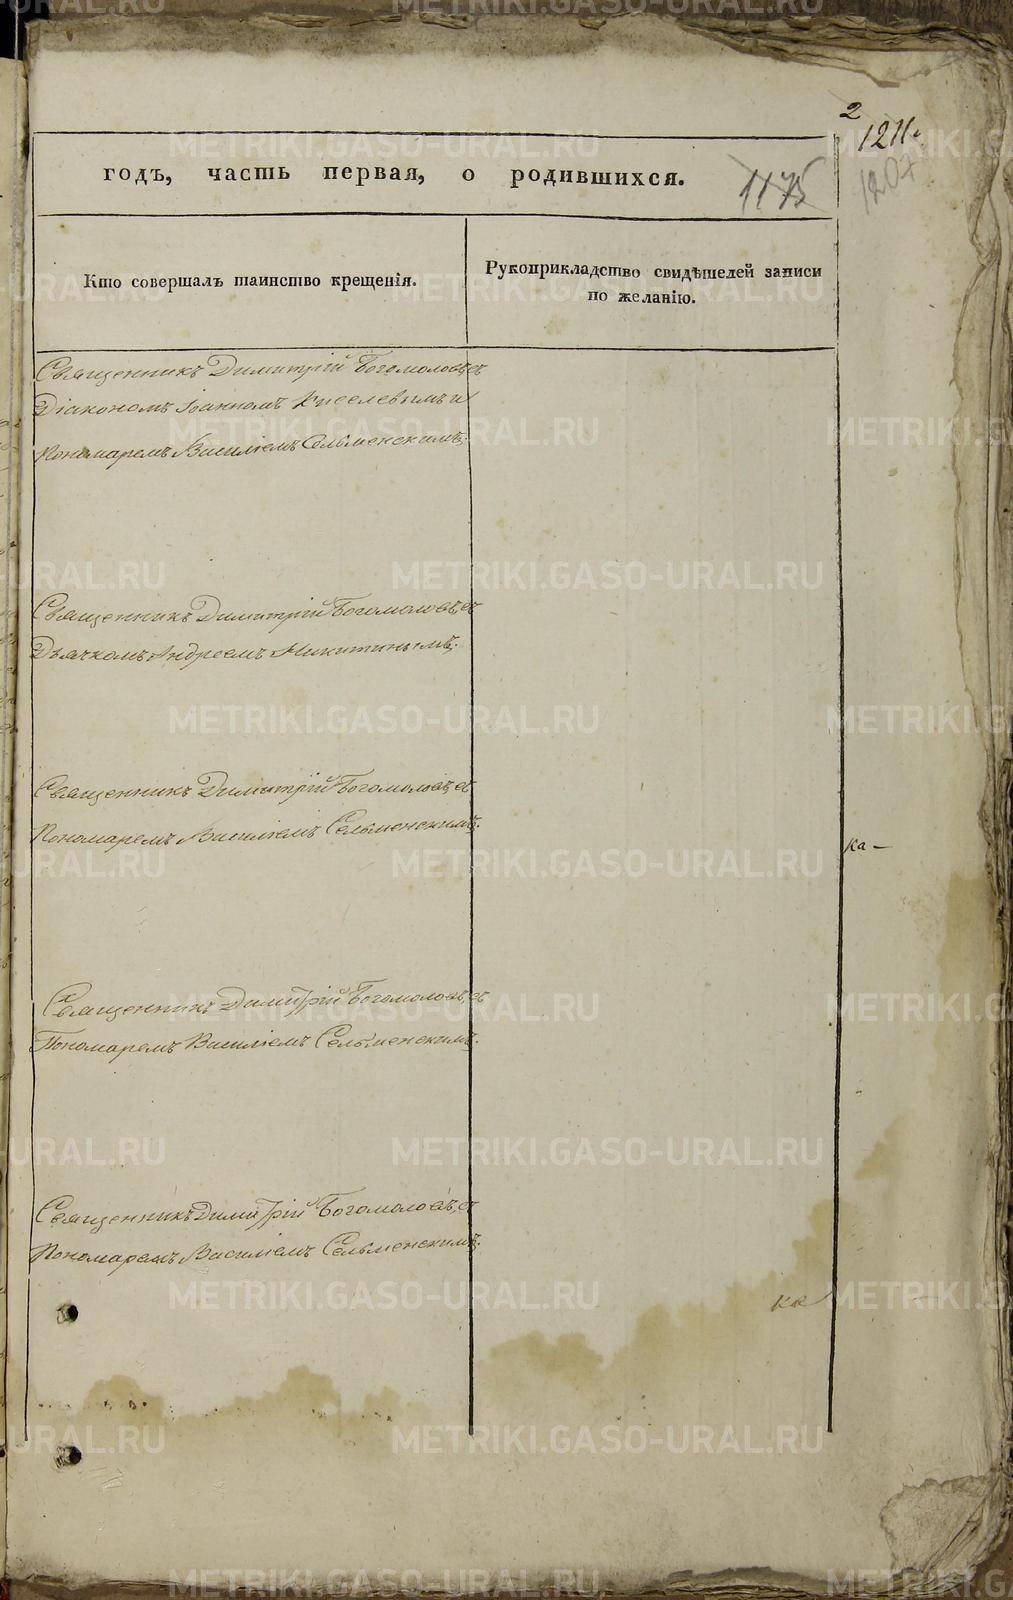 2
1211.
1207
годъ, часть первая, о родившихся.
1175
Кто совершалъ таинство крещенія.
Рукоприкладство свидѣтелей записи
по желанію.
Священникъ Димитрій Богомоловъ, съ
Діакономъ Іоанномъ Киселевымъ и
Пономаремъ Василіемъ Сельменскимъ.
Священникъ Димитрій Богомоловъ, съ
Дьячкомъ Андреемъ Никитинымъ.
Священникъ Димитрій Богомоловъ, съ
Пономаремъ Василіемъ Сельменскимъ.
ка –
Священникъ Димитрій Богомоловъ, съ
Пономаремъ Василіемъ Сельменскимъ.
Священникъ Димитрій Богомоловъ, съ
Пономаремъ Василіемъ Сельменскимъ.
METRIKI.GASO-URAL.RU